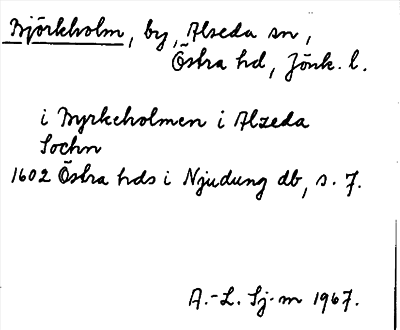 Björkholm, by, Alseda sn,
Östra hd, Jönk. l.
i Byrkeholmen i Alzeda
Sochn
1602 Östra hds i Njudung db, s. 7.
A.-L. Sj-m 1967.